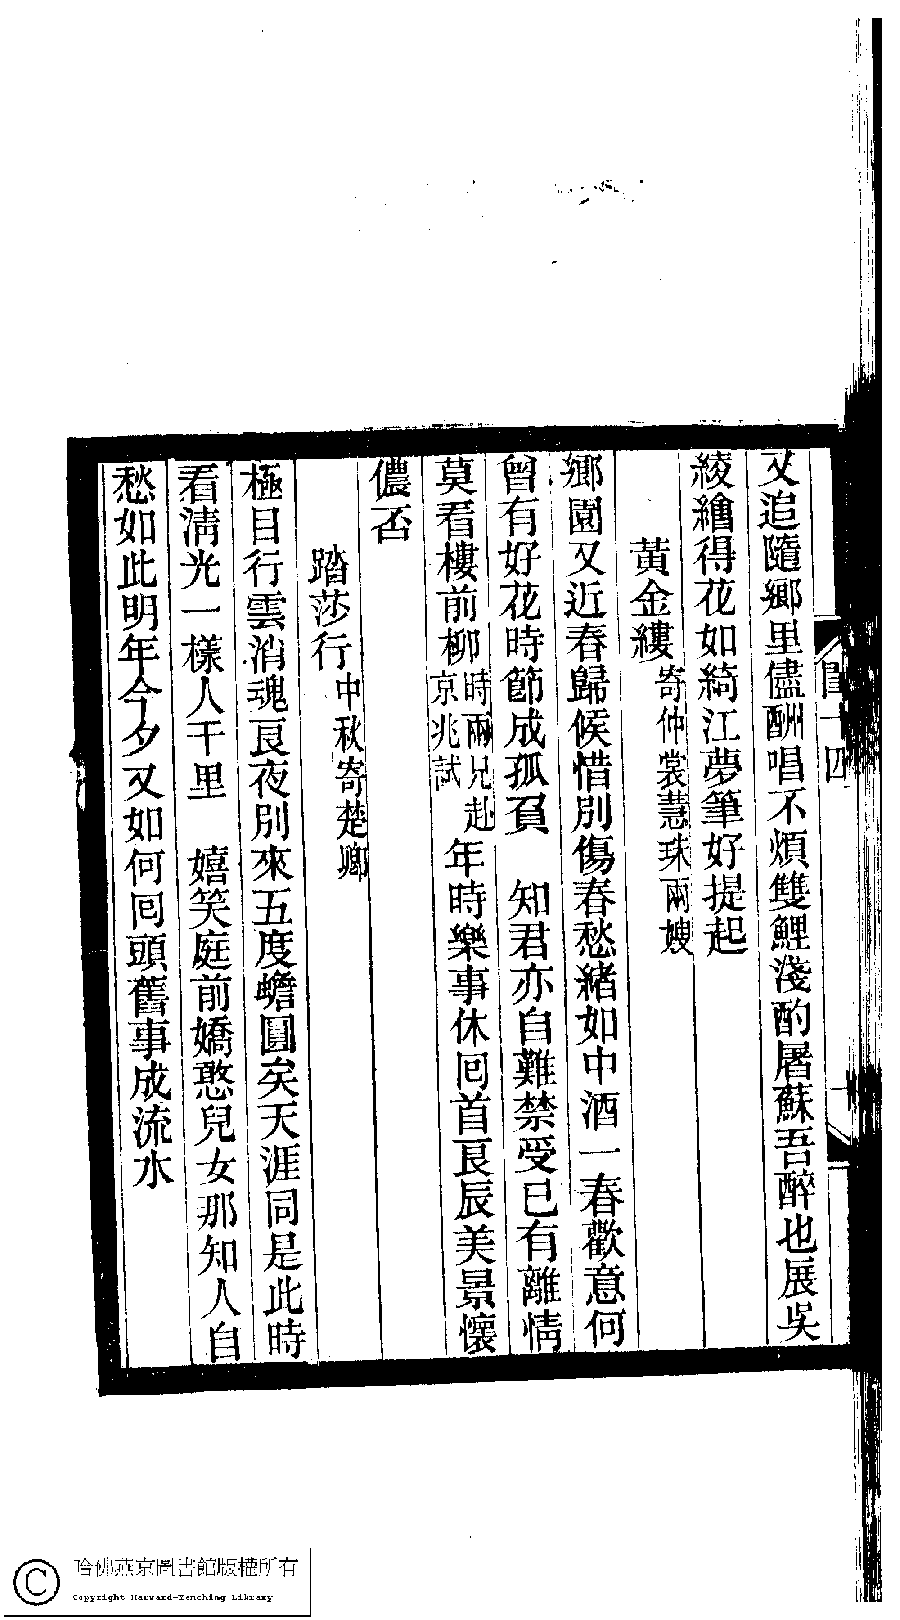 又追隨鄉里儘酬唱不煩雙鯉淺酌屠蘇吾醉也展吳
綾繪得花如綺江夢筆好提起
黃金縷寄仲裳慧珠兩嫂
鄉園又近春歸候惜別傷春愁緒如中酒一春歡意何
曾有好花時節成孤負　知君亦自難禁受已有離情
莫看樓前柳時兩兄赴京兆試年時樂事休回首良辰美景懷
儂否
踏莎行中秋寄楚卿
極目行雲消魂良夜別來五度蟾圓矣天涯同是此時
看清光一樣人千里　嬉笑庭前嬌憨兒女那知人自
愁如此明年今夕又如何回頭舊事成流水
十四
哈佛燕京圖書館版權所有
Copyright Harvard-Yenching Library